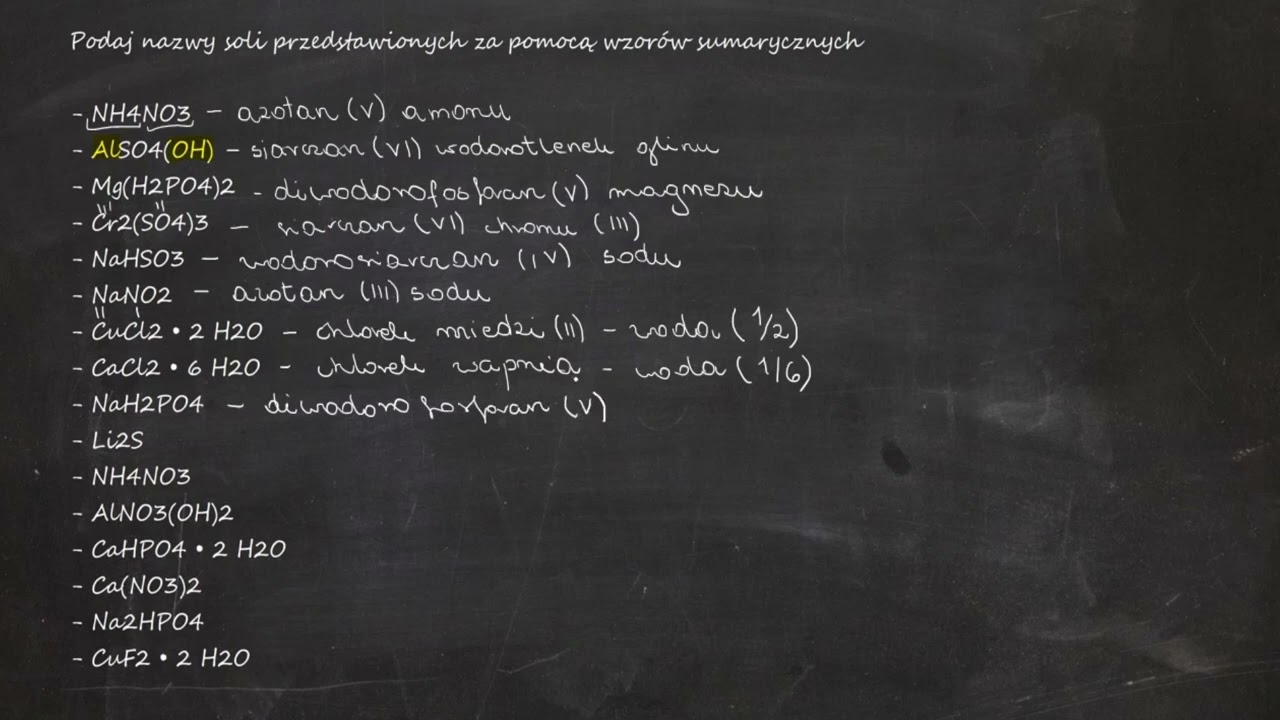 Podaj nazwy soli przedstawionych za pomocą wzorów sumarycznych
- NH4NO3 - azotan (V) amonu
- AlSO4(OH) - siarczan (VI) wodorotlenek glinu
- Mg(H2PO4)2 - diwodorofosforan (V) magnezu
- Cr2(SO4)3 - siarczan (VI) chromu (III)
- NaHSO3 - wodorosiarczan (IV) sodu
- NaNO2 - azotan (III) sodu
- CuCl2 • 2 H2O - chlorek miedzi (II) - woda (1/2)
- CaCl2 • 6 H2O - chlorek wapnia - woda (1/6)
- NaH2PO4 - diwodorofosforan (V)
- Li2S
- NH4NO3
- AlNO3(OH)2
- CaHPO4 • 2 H2O
- Ca(NO3)2
- Na2HPO4
- CuF2 • 2 H2O